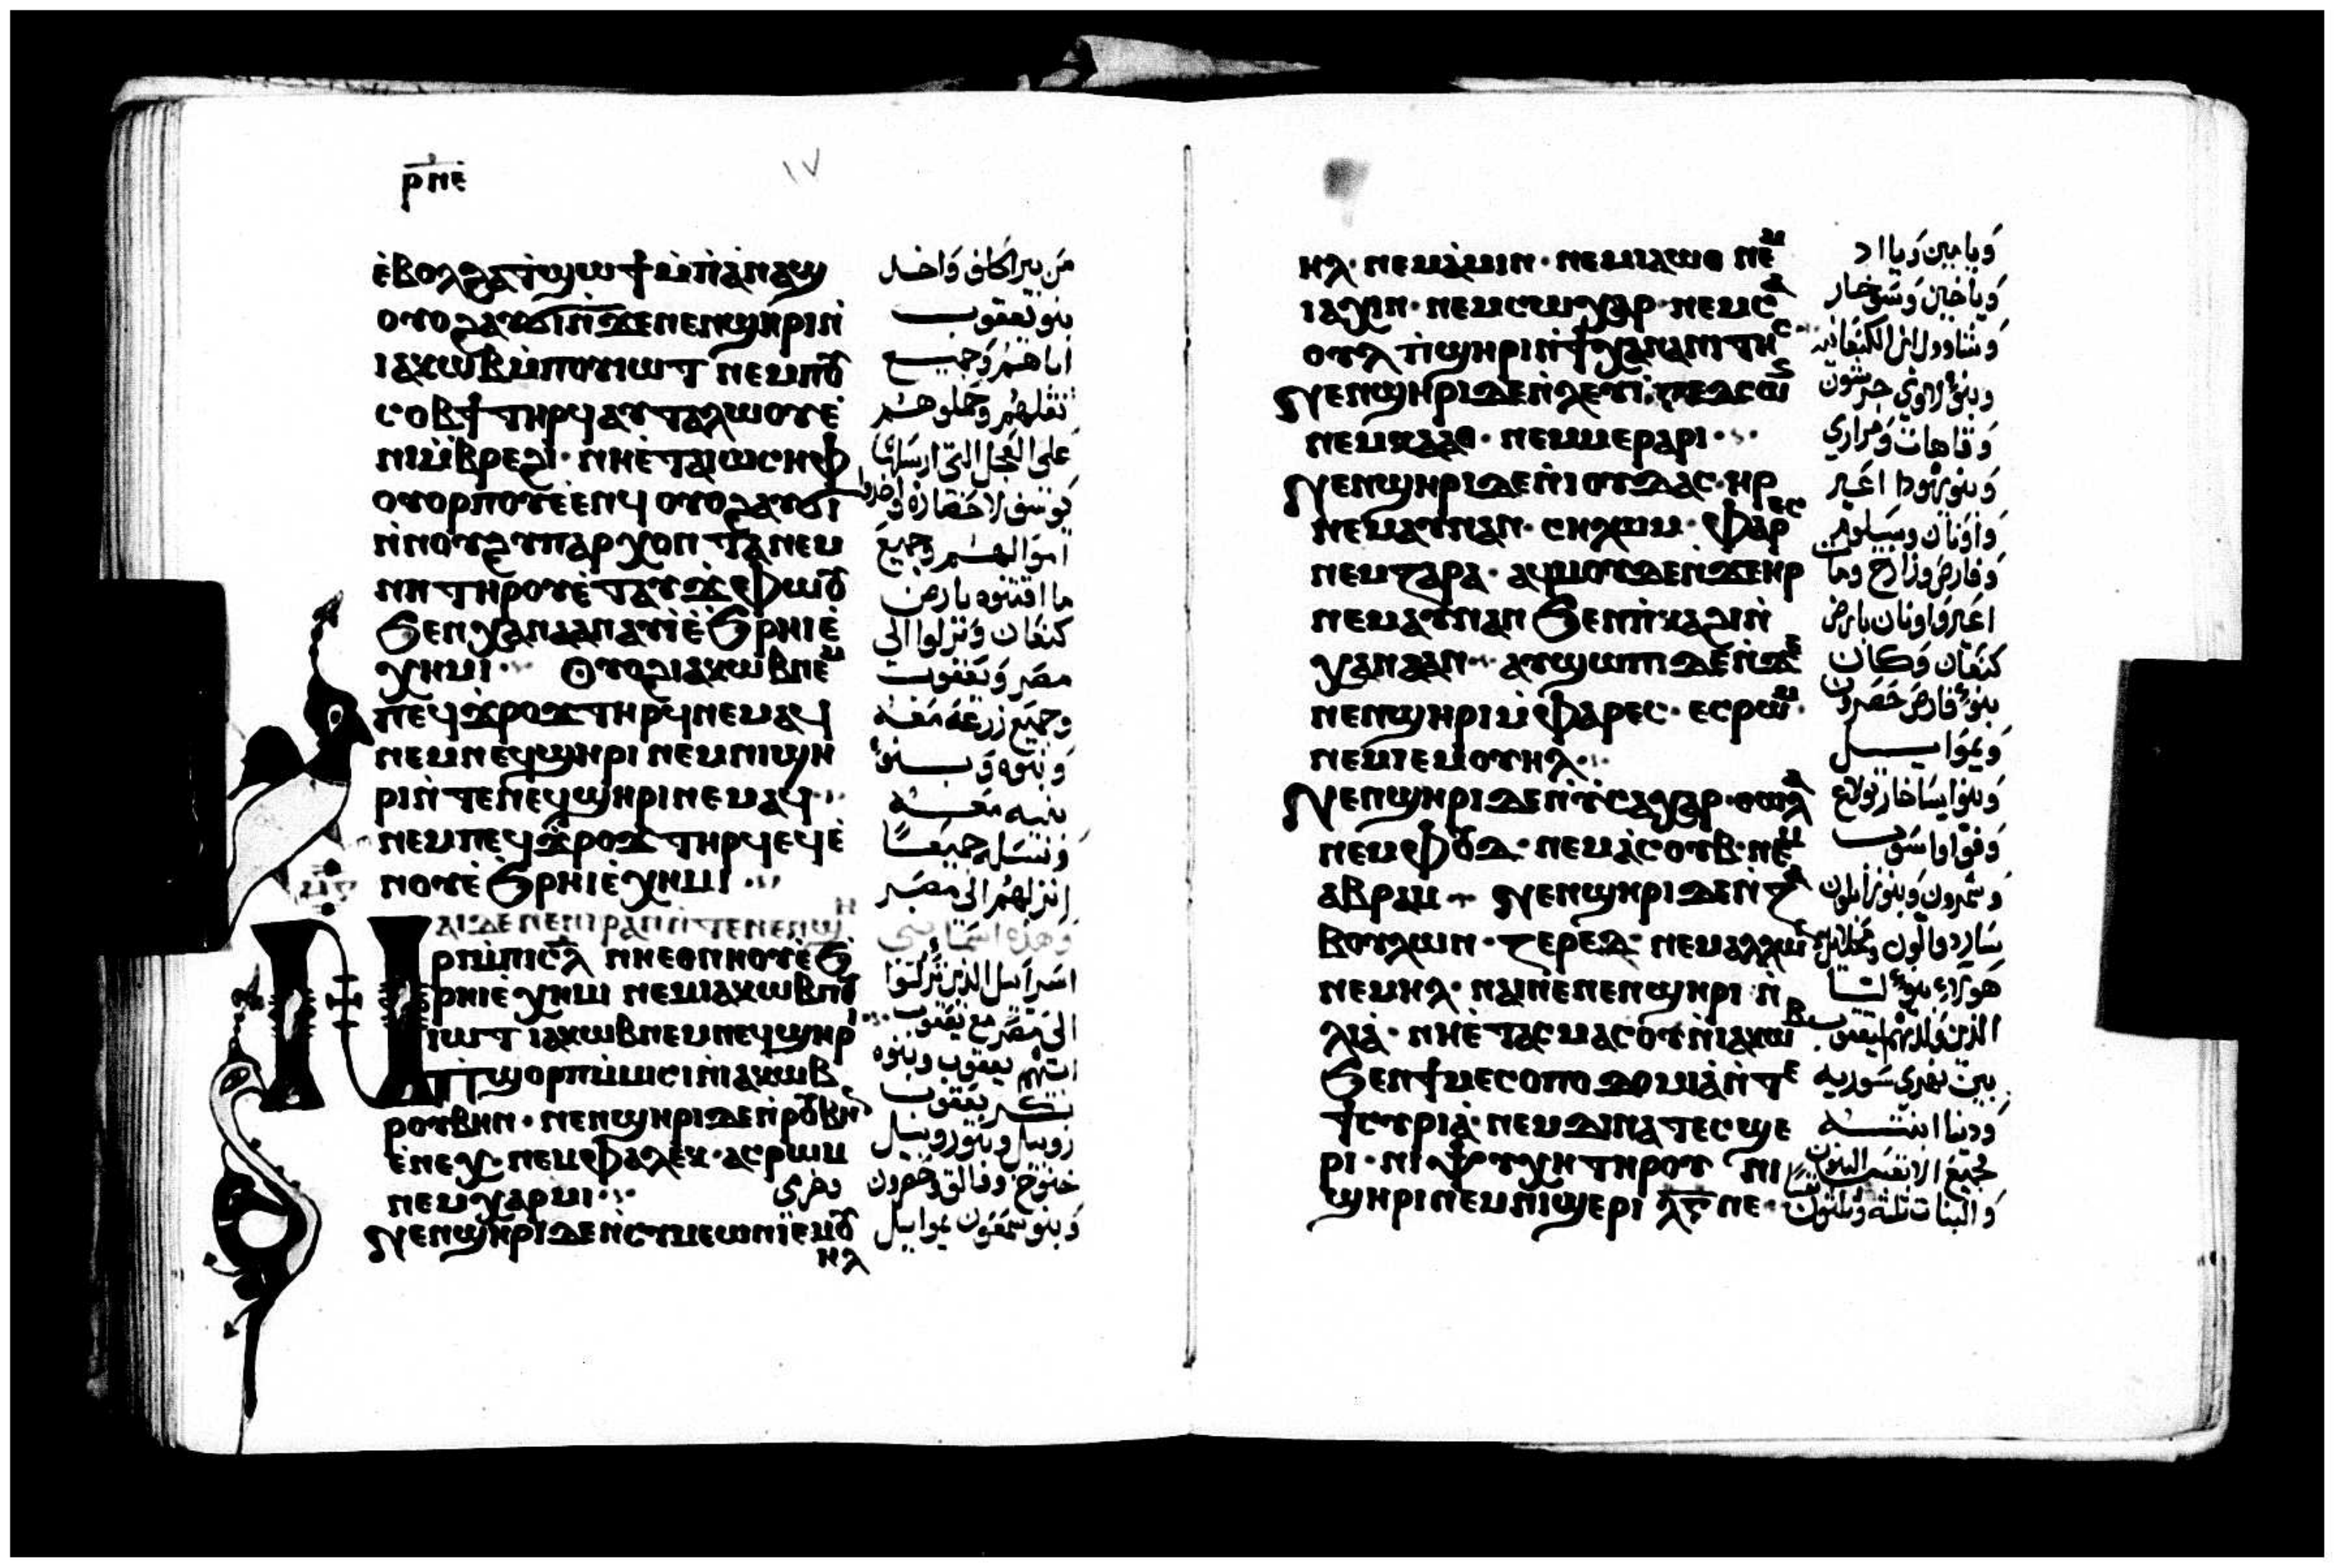 ⲣⲛⲉ
١٧
ⲉ̀ⲃⲟⲗϩⲁϯϣⲱϯⲙ̀ⲡⲁ̀ⲛⲁϣ
ⲟⲩⲟϩⲁⲩϭⲓⲛ̀ϫⲉⲛⲉⲛϣⲏⲣⲓⲛ̀
ⲓⲁⲕⲱⲃⲙ̀ⲡⲟⲩⲓⲱⲧ ⲛⲉⲙⲡⲟⲩ
ⲥⲟⲃϯ ⲧⲏⲣϥ ⲁⲩⲧⲁⲗⲱⲟⲩⲉ̀
ⲛⲓⲙ̀ⲃⲣⲉϩⲓ· ⲛⲏⲉ̀ⲧⲁⲓⲱⲥⲏⲫ
ⲟⲩⲟⲣⲡⲟⲩⲉ̀ⲉⲛϥ ⲟⲩⲟϩⲁⲩϭⲓ
ⲛ̀ⲛⲟⲩϩⲩⲡⲁⲣⲭⲟⲛⲧⲁ ⲛⲉⲙ
ⲛⲏ ⲧⲏⲣⲟⲩⲉ̀ⲧⲁⲩϫⲫⲱⲟⲩ
ϧⲉⲛⲭⲁⲛⲁⲁⲛ ⲁⲩⲓ̀ⲉ̀ϧⲣⲏⲓⲉ̀
ⲭⲏⲙⲓ· ⲟⲩⲟϩⲓⲁⲕⲱⲃⲛⲉⲙ
ⲡⲉϥϫⲣⲟϫ ⲧⲏⲣϥⲛⲉⲙⲁϥ
ⲛⲉⲙⲛⲉϥϣⲏⲣⲓ ⲛⲉⲙⲛⲓϣⲏ
ⲣⲓⲛ̀ⲧⲉⲛⲉϥϣⲏⲣⲓⲛⲉⲙⲁϥ·
ⲛⲉⲙⲡⲉϥϫⲣⲟϫ ⲧⲏⲣϥⲉϥⲉ̀
ⲛⲟⲩⲉ̀ϧⲣⲏⲓⲉ̀ⲭⲏⲙⲓ
ⲛⲁⲓⲇⲉⲛⲉⲛⲓⲣⲁⲛⲛ̀ⲧⲉⲛⲉⲛϣⲏ
ⲣⲓⲙ̀ⲡⲓⲥⲗ ⲛⲏⲉⲑⲛⲏⲟⲩⲉ̀ϧ
ⲣⲏⲓⲉⲭⲏⲙⲓ ⲛⲉⲙⲓⲁⲕⲱⲃⲡⲟⲩ
ⲓⲱⲧ ⲓⲁⲕⲱⲃⲛⲉⲙⲛⲉϥϣⲏⲣⲓ
ⲡϣⲟⲣⲡⲙ̀ⲙⲓⲥⲓⲛ̀ⲓⲁⲕⲱⲃ
ⲣⲟⲩⲃⲏⲛ· ⲛⲉⲛϣⲏⲣⲓⲇⲉⲛ̀ⲣⲟⲩⲃⲏⲛ
ⲉⲛⲉⲭ· ⲛⲉⲙⲫⲁⲗⲉⲕ· ⲁⲥⲣⲱⲙ
ⲛⲉⲙⲭⲁⲣⲙⲓ·
ⲛⲉⲛϣⲏⲣⲓⲇⲉⲛ̀ⲥⲩⲙⲉⲱⲛⲓⲉⲙⲟⲩ
ⲏⲗ
من بير الحلف واخذ
بنو يعقوب
اباهم وجميع
ثقلهم وحملوهم
على العجل التي ارسلها
يوسف لاحضاره واخذوا
اموالهم وجميع
ما اقتنوه بارض
كنعان ونزلوا الى
مصر ويعقوب
وجميع زرعه معه
وبنوه وبنو
بنيه معه
ونسله جميعا
انزلهم الى مصر
وهذه اسما بني
اسراييل الذين نزلوا
الى مصر مع يعقوب
ابيهم يعقوب وبنوه
بكر يعقوب
روبيل وبنو روبيل
خنوخ وفالق وحصرون
وخرمي
وبنو شمعون يموابيل
ⲏⲗ· ⲛⲉⲙⲁ̀ⲙⲓⲛ· ⲛⲉⲙⲓⲁⲱⲑ ⲛⲉⲙ
ⲓⲁⲭⲓⲛ· ⲛⲉⲙⲥⲱⲭⲁⲣ· ⲛⲉⲙⲥⲁ
ⲟⲩⲗ ⲡ̀ϣⲏⲣⲓⲛ̀ϯⲭⲁⲛⲁⲛⲓⲧⲏⲥ
ⲛⲉⲛϣⲏⲣⲓⲇⲉⲛ̀ⲗⲉⲩⲓ·
ⲛⲉⲙⲕⲁⲁⲑ· ⲛⲉⲙⲙⲉⲣⲁⲣⲓ·
ⲛⲉⲛϣⲏⲣⲓⲇⲉⲛ̀ⲓⲟⲩⲇⲁⲥ· ⲏⲣ
ⲛⲉⲙⲁⲩⲛⲁⲛ· ⲥⲏⲗⲱⲙ· ⲫⲁⲣⲉⲥ
ⲛⲉⲙⲍⲁⲣⲁ· ⲁϥⲙⲟⲩⲇⲉⲛ̀ϫⲉⲏⲣ
ⲛⲉⲙⲁⲩⲛⲁⲛ ϧⲉⲛⲡ̀ⲕⲁϩⲓⲛ̀
ⲭⲁⲛⲁⲁⲛ· ⲁⲩϣⲱⲡⲓ ⲇⲉⲛ̀ϫⲉ
ⲛⲉⲛϣⲏⲣⲓⲙ̀ⲫⲁⲣⲉⲥ· ⲉⲥⲣⲱⲙ·
ⲛⲉⲙⲓⲉⲙⲟⲩⲏⲗ·
ⲛⲉⲛϣⲏⲣⲓⲇⲉⲛ̀ⲓⲥⲁⲭⲁⲣ· ⲑⲱⲗⲁ
ⲛⲉⲙⲫⲟⲩⲁ· ⲛⲉⲙⲁ̀ⲥⲟⲩⲃ· ⲛⲉⲙ
ⲁⲃⲣⲁⲙ· ⲛⲉⲛϣⲏⲣⲓⲇⲉⲛ̀ⲍⲁ
ⲃⲟⲩⲗⲱⲛ· ⲍⲉⲣⲉⲇ· ⲛⲉⲙⲁⲗⲗⲱⲛ
ⲛⲉⲙⲏⲗ· ⲛⲁⲓⲛⲉⲛⲉⲛϣⲏⲣⲓ ⲛ̀
ⲗⲓⲁ̀· ⲛⲏⲉ̀ⲧⲁⲥⲙⲁⲥⲟⲩⲛ̀ⲓⲁⲕⲱⲃ
ϧⲉⲛϯⲙⲉⲥⲟⲡⲟⲇⲟⲙⲓⲁ̀ⲛ̀ⲧⲉ
ϯⲥⲩⲣⲓⲁ̀· ⲛⲉⲙⲇⲓⲛⲁ ⲧⲉⲥϣⲉ
ⲣⲓ· ⲛⲓⲯⲩⲭⲏ ⲧⲏⲣⲟⲩ ⲛⲓ
ϣⲏⲣⲓⲛⲉⲙⲛⲓϣⲉⲣⲓ ⲗⲅ ⲛⲉ·
ويامين وياا د
وياخين وسوخار
وشاوول ابن الكنعانيه
وبنو لاوي جرشون
وقاهات ومراري
وبنو يهوذا اعير
واونان وسيلوم
وفارص وزارح ومات
اعير واونان بارض
كنعان وكان
بنو فارص حصرون
ويموابيل
وبنو ايساخار تولاع
وفوا وياسوب
وشمرون وبنو زابلون
سارد والون
هولاء بنو ليا
الذين ولدتهم ليعقوب
بين نهري سوريه
ودينا ابنته
جميع الانفس البنون
والبنات ثلثه وثلثون